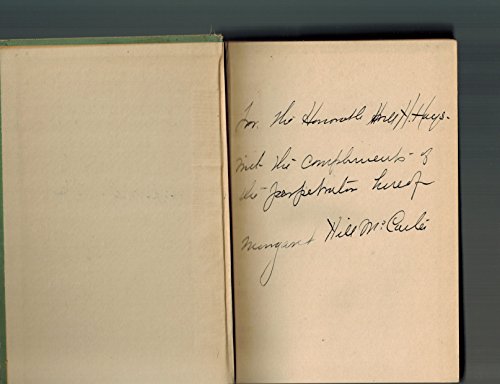 For the Honorable Will H. Hays.
with the compliments of
the perpetrator hereof
Margaret Hill McCarter